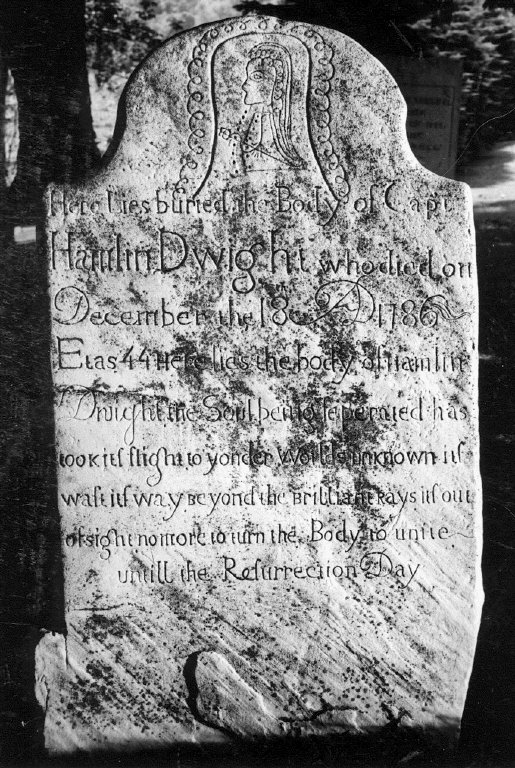 Here Lies buried the Body of Capt
Hamlin Dwight who died on
December the 18 AD 1786
Etas 44 Here lies the body of Hamlin
Dwight the Soul being seperated has
took itſ flight to yonder Worlds unknown itſ
waft itſ way Beyond the Brilliant Rays itſ out
of sight no more to turn the Body to unite
untill the Reſurrection Day